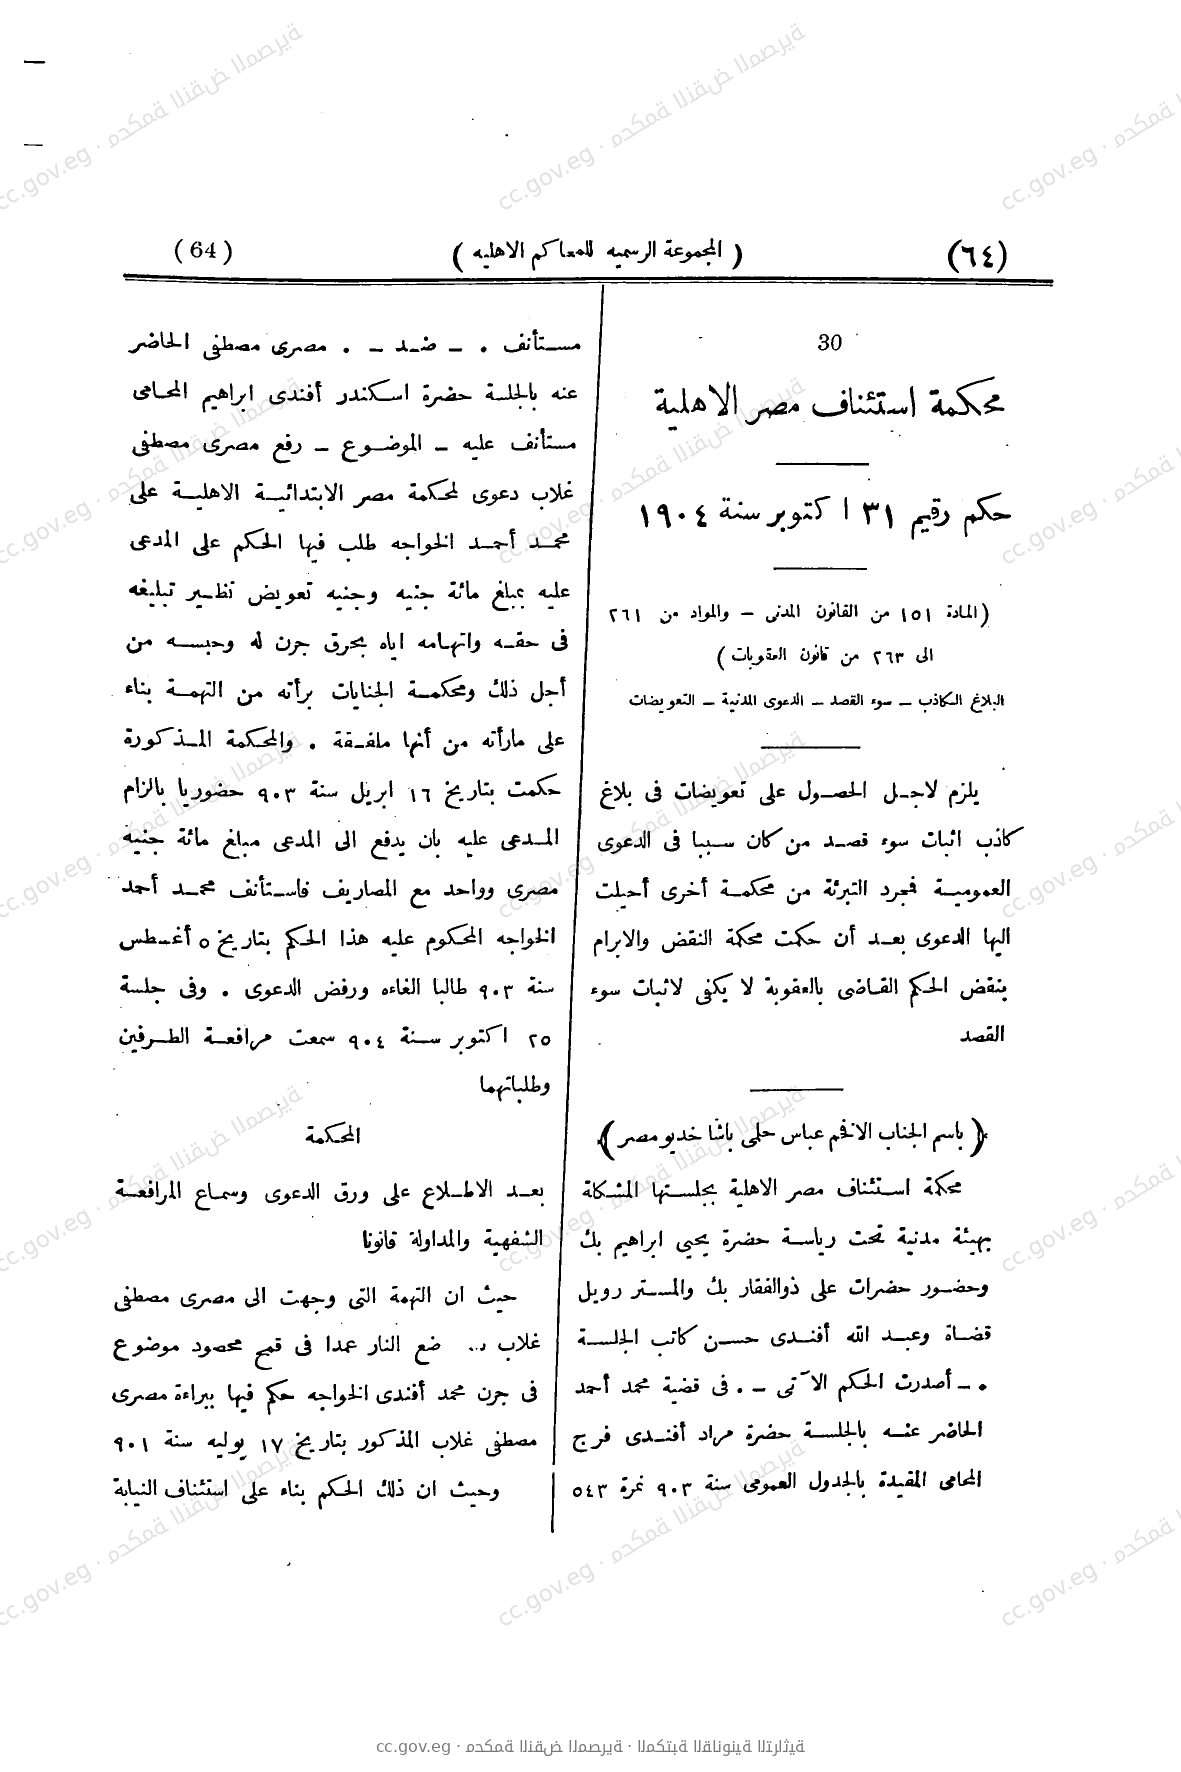 (٦٤) ( المجموعة الرسميه للمحاكم الاهليه ) ( 64 )
30
محكمة استئناف مصر الاهلية
حكم رقيم ٣١ اكتوبر سنة ١٩٠٤
(المادة ١٥١ من القانون المدنى – والمواد من ٢٦١
الى ٢٦٣ من قانون العقوبات )
البلاغ الكاذب – سوء القصد – الدعوى المدنية – التعويضات
يلزم لاجل الحصول على تعويضات فى بلاغ
كاذب اثبات سوء قصد من كان سببا فى الدعوى
العمومية فمجرد التبرئة من محكمة أخرى أحيلت
اليها الدعوى بعد أن حكمت محكمة النقض والابرام
بنقض الحكم القاضى بالعقوبة لا يكفى لاثبات سوء
القصد
( باسم الجناب الافخم عباس حلمى باشا خديو مصر )
محكمة استئناف مصر الاهلية بجلستها المشكلة
بهيئة مدنية تحت رياسة حضرة يحيى ابراهيم بك
وحضور حضرات على ذوالفقار بك والمستر رويل
قضاة وعبد الله أفندى حسن كاتب الجلسة
. – أصدرت الحكم الآتى – . فى قضية محمد أحمد
الحاضر عنه بالجلسة حضرة مراد أفندى فرج
المحامى المقيدة بالجدول العمومى سنة ٩٠٣ نمرة ٥٤٣
مستأنف . – ضد – . مصرى مصطفى الحاضر
عنه بالجلسة حضرة اسكندر أفندى ابراهيم المحامى
مستأنف عليه – الموضوع – رفع مصرى مصطفى
غلاب دعوى لمحكمة مصر الابتدائية الاهلية على
محمد أحمد الخواجه طلب فيها الحكم على المدعى
عليه بمبلغ مائة جنيه وجنيه تعويض نظير تبليغه
فى حقه واتهامه اياه بحرق جرن له وحبسه من
أجل ذلك ومحكمة الجنايات برأته من التهمة بناء
على مارأته من أنها ملفقة . والمحكمة المذكورة
حكمت بتاريخ ١٦ ابريل سنة ٩٠٣ حضوريا بالزام
المدعى عليه بان يدفع الى المدعى مبلغ مائة جنيه
مصرى وواحد مع المصاريف فاستأنف محمد أحمد
الخواجه المحكوم عليه هذا الحكم بتاريخ ٥ أغسطس
سنة ٩٠٣ طالبا الغاءه ورفض الدعوى . وفى جلسة
٢٥ اكتوبر سنة ٩٠٤ سمعت مرافعة الطرفين
وطلباتهما
المحكمة
بعد الاطلاع على ورق الدعوى وسماع المرافعة
الشفهية والمداولة قانونا
حيث ان التهمة التى وجهت الى مصرى مصطفى
غلاب ضع النار عمدا فى قمح محصود موضوع
فى جرن محمد أفندى الخواجه حكم فيها ببراءة مصرى
مصطفى غلاب المذكور بتاريخ ١٧ يوليه سنة ٩٠١
وحيث ان ذلك الحكم بناء على استئناف النيابة
cc.gov.eg · محكمة النقض المصرية · المكتبة القانونية التراثية